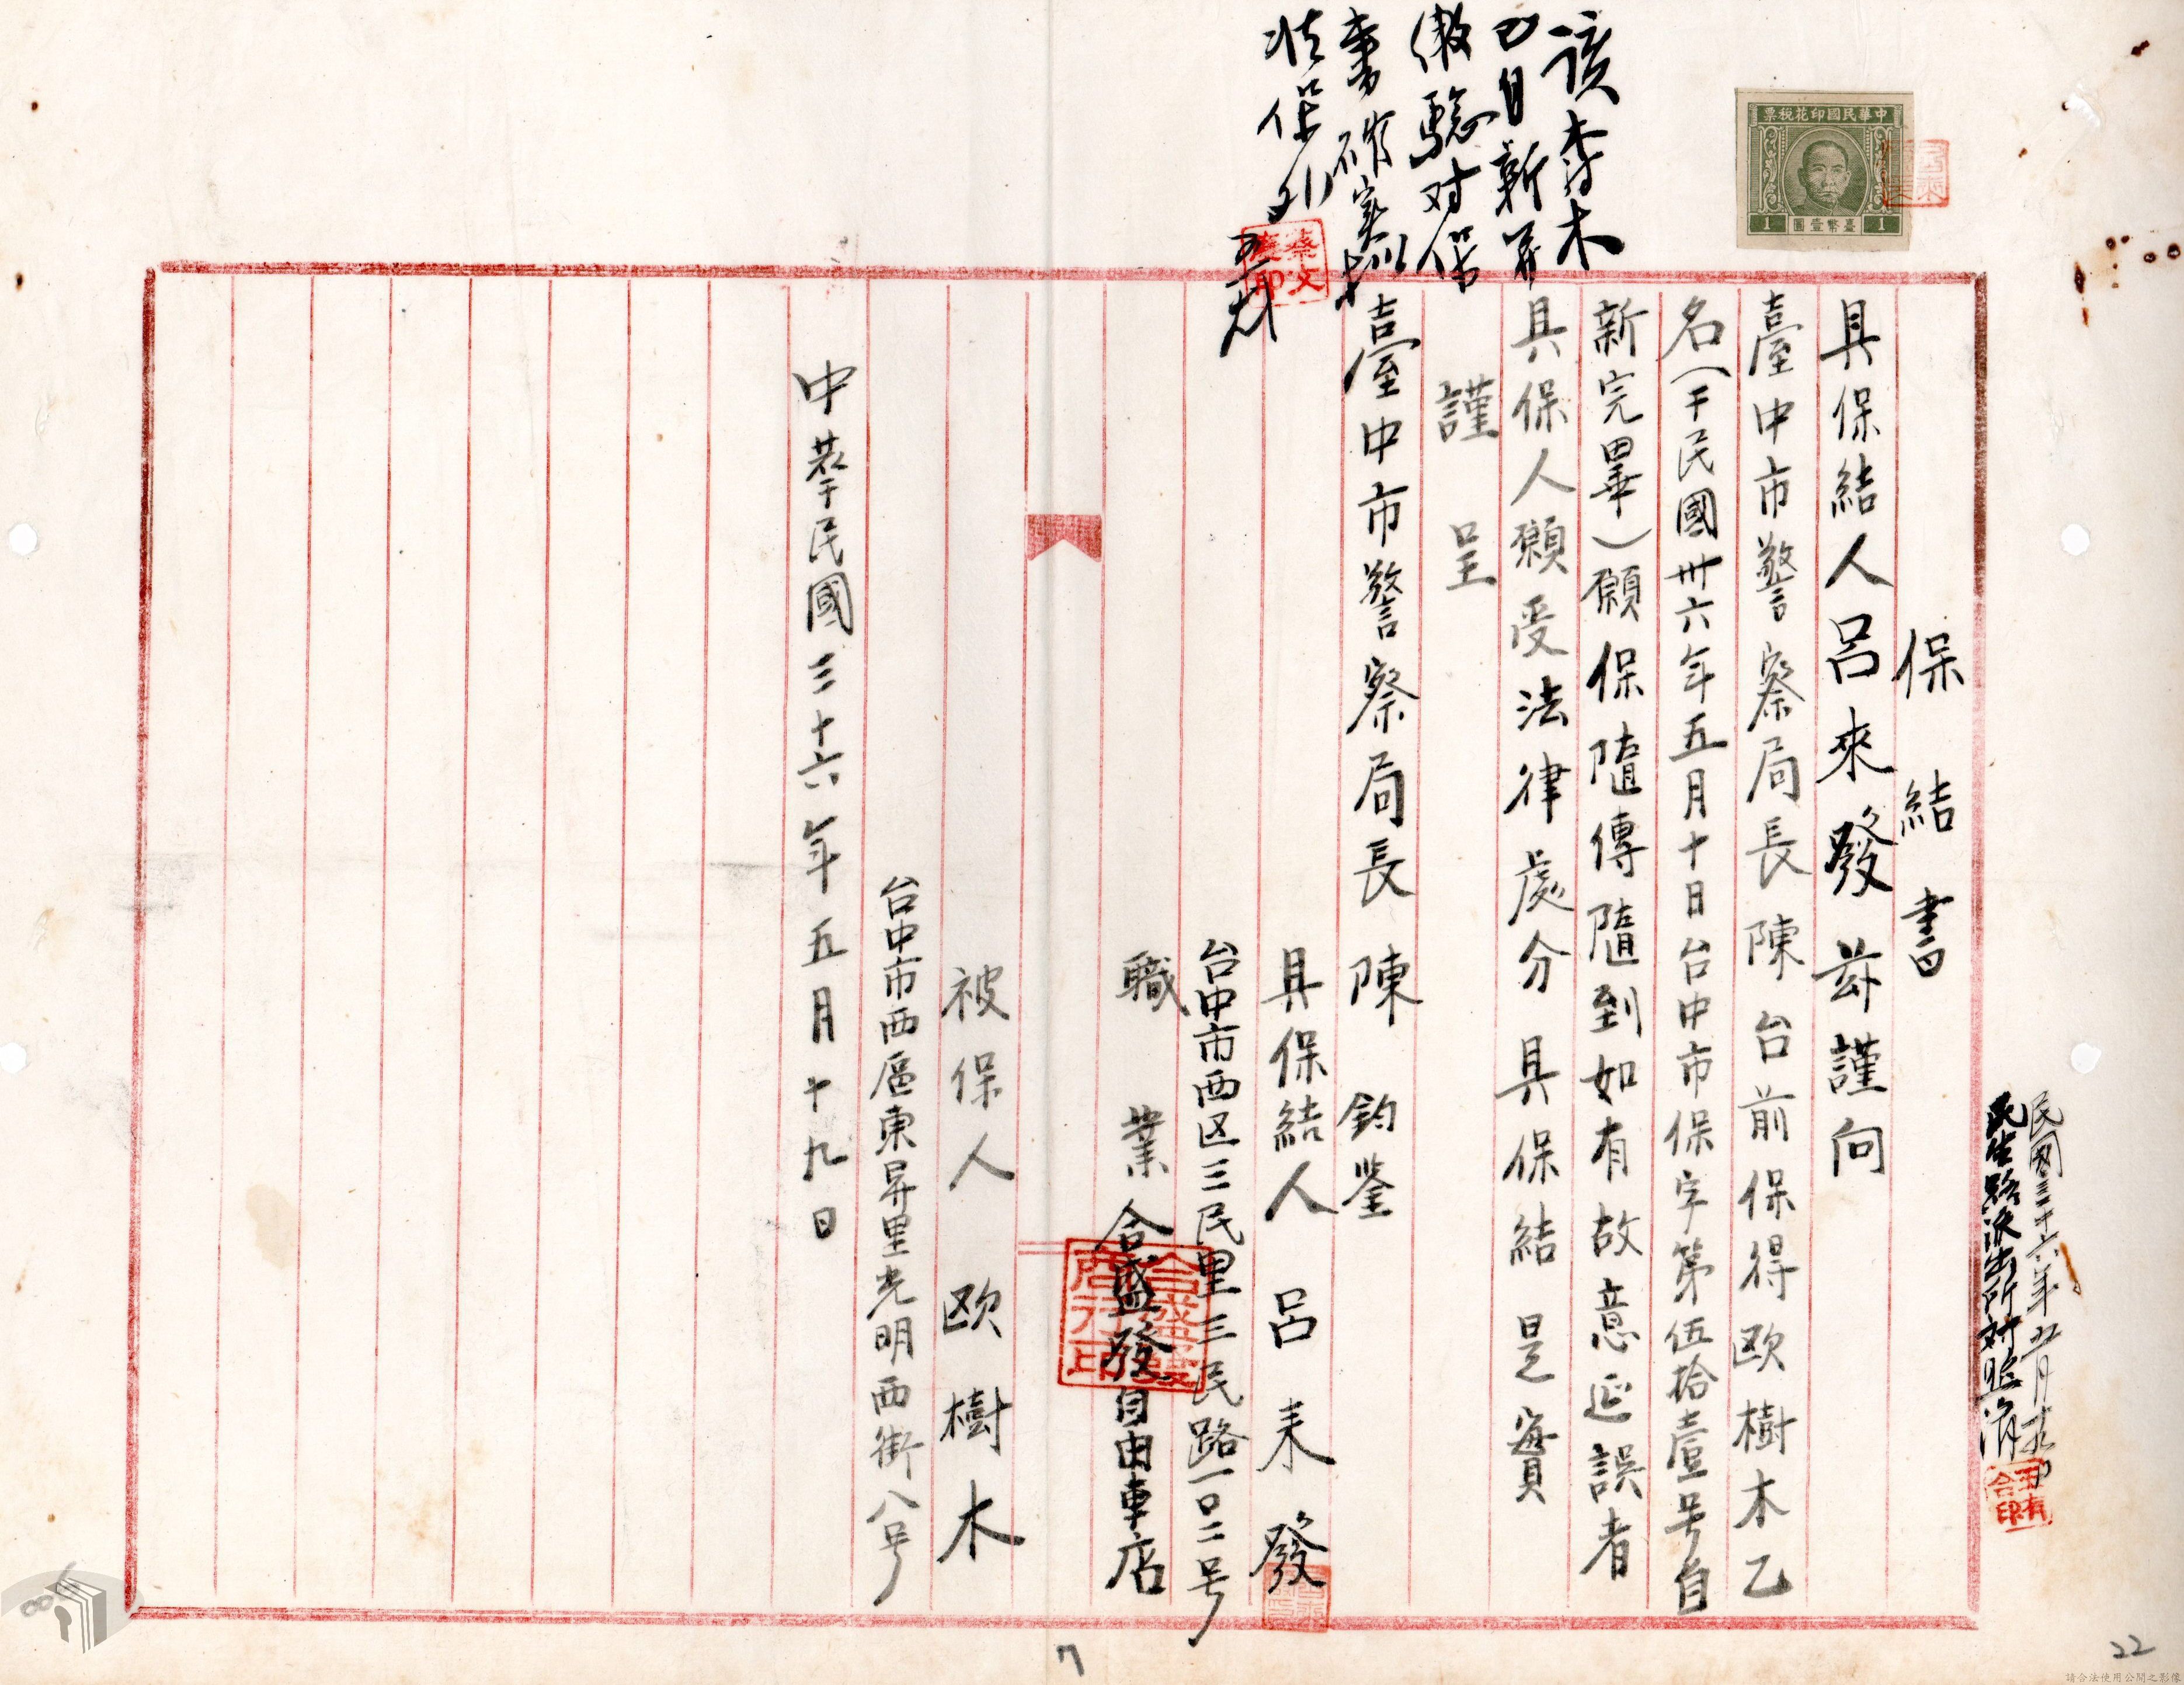 中華民國印花稅票
1 臺幣壹圓 1
保結書
具保結人呂來發茲謹向
臺中市警察局長陳 台前保得欧樹木乙
名(于民國卅六年五月十日台中市保字第伍拾壹号自
新完畢)願保隨傳隨到如有故意延誤者
具保人願受法律處分 具保結是實
謹 呈
臺中市警察局長 陳 鈞鉴
具保結人 呂來發
台中市西区三民里三民路一〇二号
職業 合盛發自由車店
合盛發商行印
被保人 欧樹木
台中市西區東昇里光明西街八号
中華民國三十六年五月十九日
民國三十六年五月十九日
民生路派出所对照済
已自新并
繳驗对保
蔡文
7
22
請合法使用公開之影像